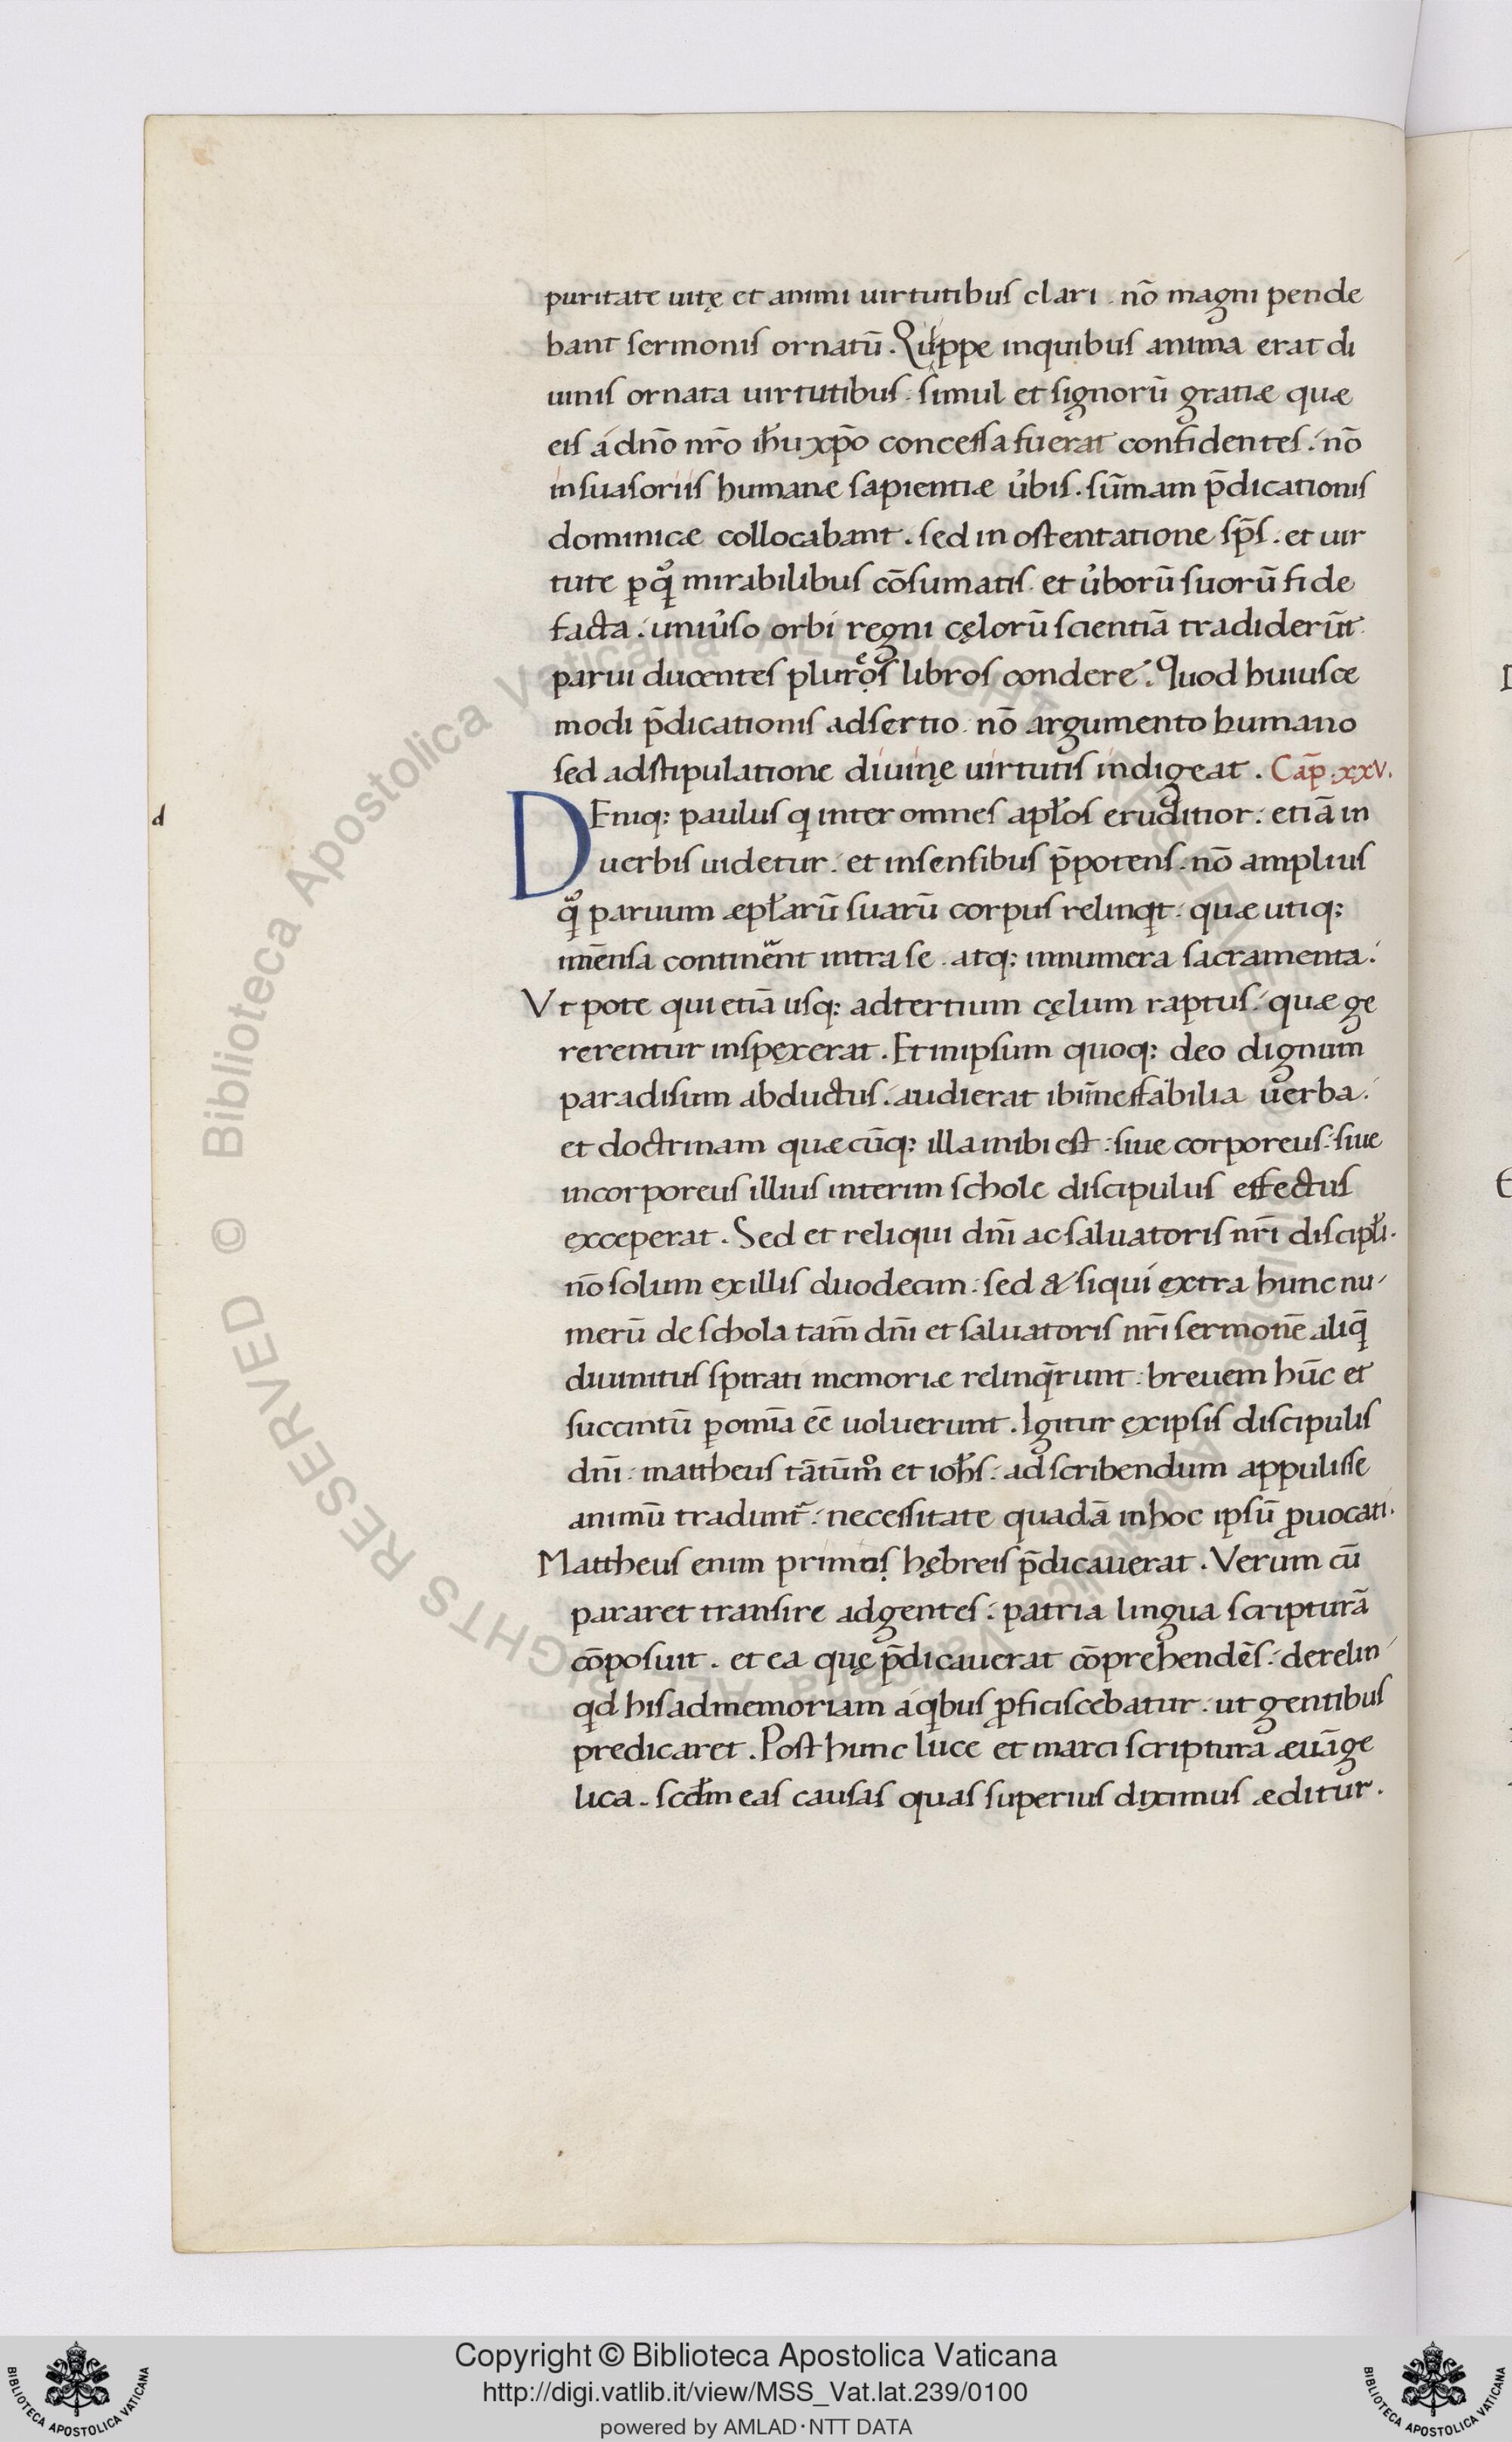 puritate uitę et animi uirtutibus clari . nō magni pende
bant sermonis ornatū . Quippe inquibus anima erat di
uinis ornata uirtutibus . simul et signorū gratiæ quæ
eis a dnō nrō ih̄u xp̄o concessa fuerat confidentes . nō
in suasoriis humanæ sapientiæ u̓bis . sūmam p̄dicationis
dominicæ collocabant . sed in ostentatione sp̄s . et uir
tute ꝑ qꝫ mirabilibus cōsumatis . et u̓borū suorū fide
facta . uniu̓so orbi regni cęlorū scientiā tradiderūt
parui ducentes pluręs libros condere . Quod huiusce
modi p̄dicationis adsertio . nō argumento humano
sed adstipulatione diuinę uirtutis indigeat . Cap̄ . xxv .
d
DEniq; paulus q inter omnes apłos eruditior . etiā in
uerbis uidetur . et insensibus p̄potens . nō amplius
q̊ paruum æpłarū suarū corpus relinqt . quæ utiq;
imēnsa continent intra se . atq; innumera sacramenta .
Vt pote qui etiā usq; adtertium cęlum raptus . quæ ge
rerentur inspexerat . Et inipsum quoq; deo dignum
paradisum abductus . audierat ibi ineffabilia uerba .
et doctrinam quæcūq; illa inibi est . siue corporeus . siue
incorporeus illius interim schole discipulus effectus
exceperat . Sed et reliqui dnī ac saluatoris nrī discipłi .
nō solum exillis duodecim . sed & siqui extra hunc nu
merū de schola tam̄ dnī et saluatoris nrī sermonē aliq̄
diuinitus spirati memoriæ relinq̄runt . breuem hūc et
succintū ꝑ omīa eē uoluerunt . Igitur exipsis discipulis
dnī . mattheus tātūm̊ et ioh̄s . ad scribendum appulisse
animū tradunt̄ . necessitate quadā inhoc ipsū ꝓuocati .
Mattheus enim primus hębreis p̄dicauerat . Verum cū
pararet transire adgentes . patria lingua scripturā
cōposuit . et ea quę p̄dicauerat cōprehendēs . derelin
qd his admemoriam aqbus ꝓficiscebatur . ut gentibus
predicaret . Post hunc luce et marci scriptura æuāge
lica . scd̄m eas causas quas superius diximus æditur .
Copyright © Biblioteca Apostolica Vaticana
http://digi.vatlib.it/view/MSS_Vat.lat.239/0100
powered by AMLAD·NTT DATA
© Biblioteca Apostolica Vaticana ALL RIGHTS RESERVED
BIBLIOTECA APOSTOLICA VATICANA
BIBLIOTECA APOSTOLICA VATICANA